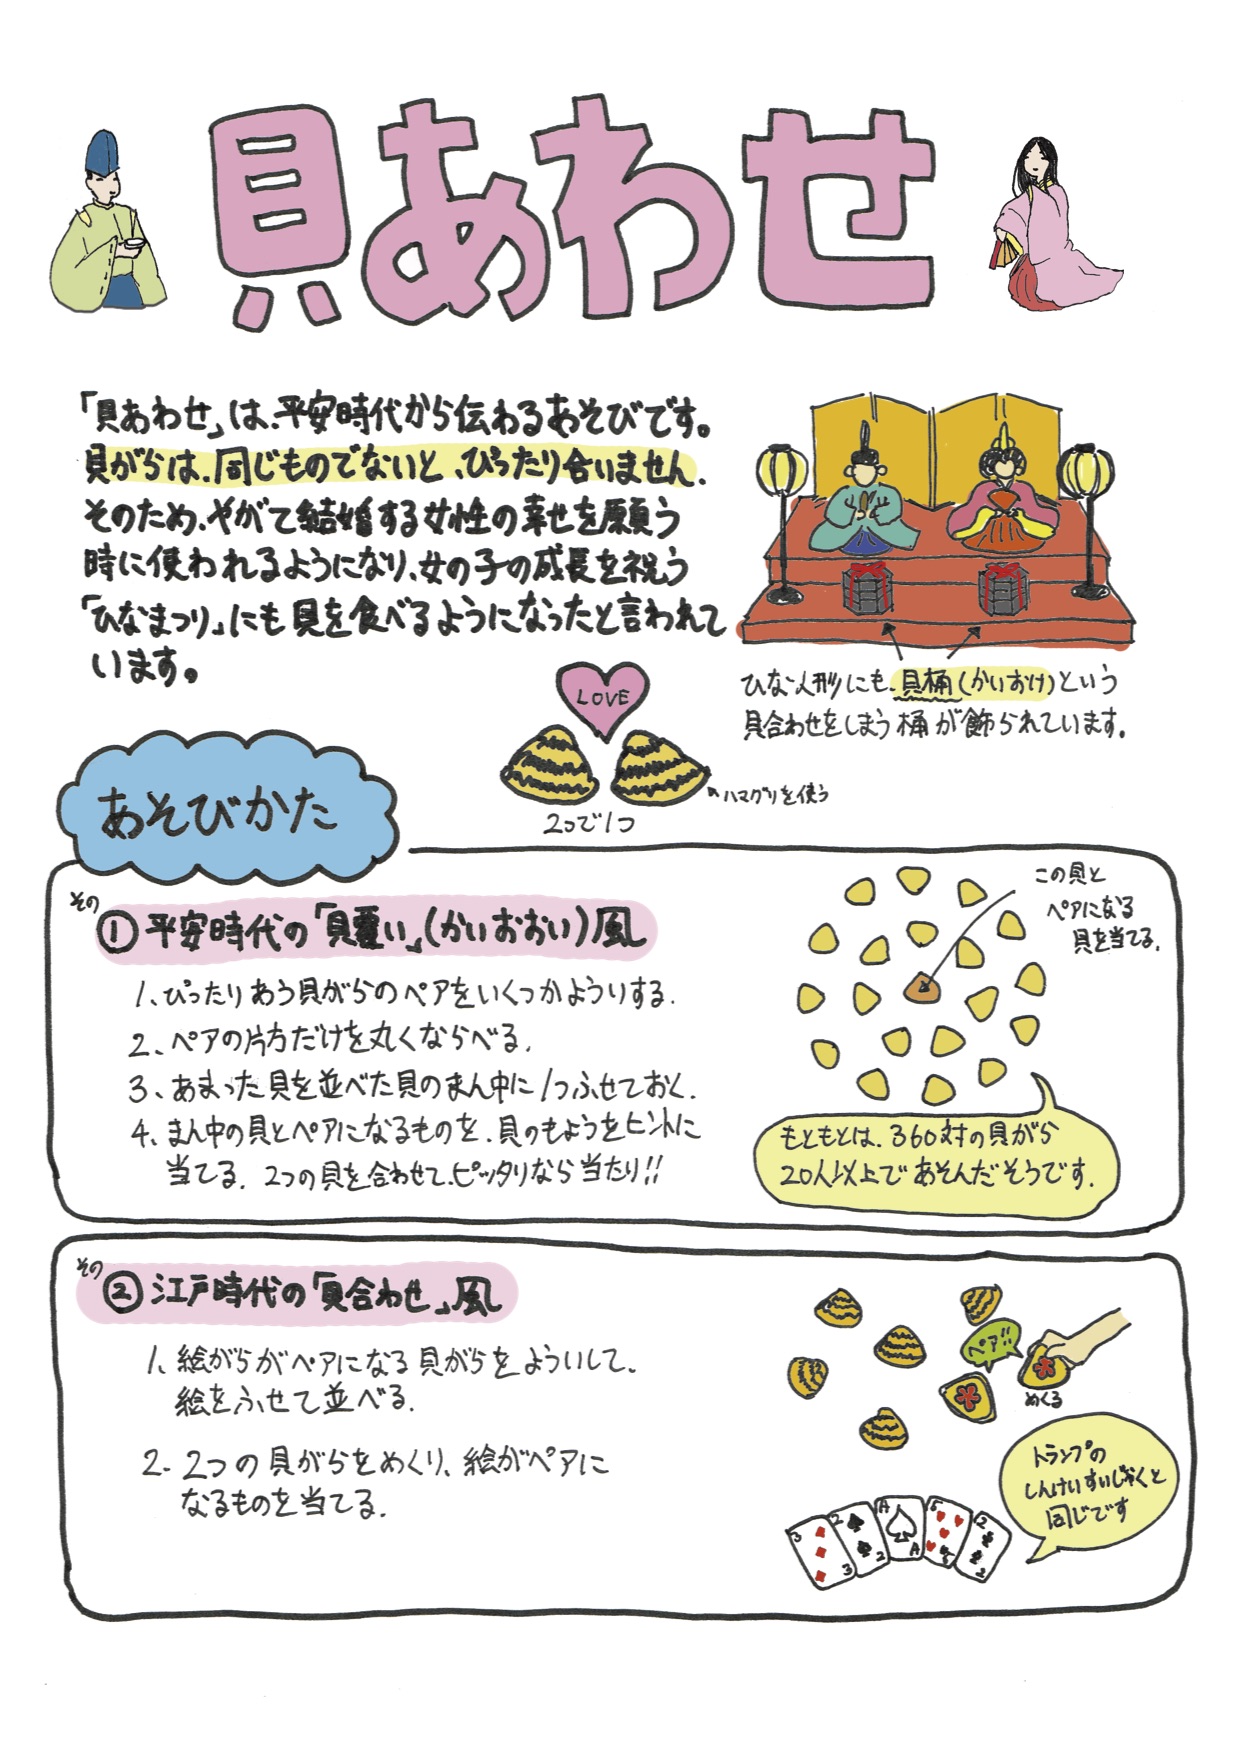 貝あわせ
「貝あわせ」は、平安時代から伝わるあそびです。
貝がらは、同じものでないと、ぴったり合いません。
そのため、やがて結婚する女性の幸せを願う
時に使われるようになり、女の子の成長を祝う
「ひなまつり」にも貝を食べるようになったと言われて
います。
ひな人形にも、貝桶(かいおけ)という
貝合わせをしまう桶が飾られています。
LOVE
ハマグリを使う
2つで1つ
あそびかた
その
① 平安時代の「貝覆い」(かいおおい)風
1、ぴったりあう貝がらのペアをいくつかよういする.
2、ペアの片方だけを丸くならべる.
3、あまった貝を並べた貝のまん中に1つふせておく.
4、まん中の貝とペアになるものを、貝のもようをヒントに
当てる. 2つの貝を合わせて、ピッタリなら当たり!!
この貝と
ペアになる
貝を当てる.
もともとは、360対の貝がら
20人以上であそんだそうです.
その
② 江戸時代の「貝合わせ」風
1、絵がらがペアになる貝がらをよういして、
絵をふせて並べる.
2- 2つの貝がらをめくり、絵がペアに
なるものを当てる.
ペア!!
めくる
トランプの
しんけいすいじゃくと
同じです
3
3
2
2
A
A
5
5
2
2